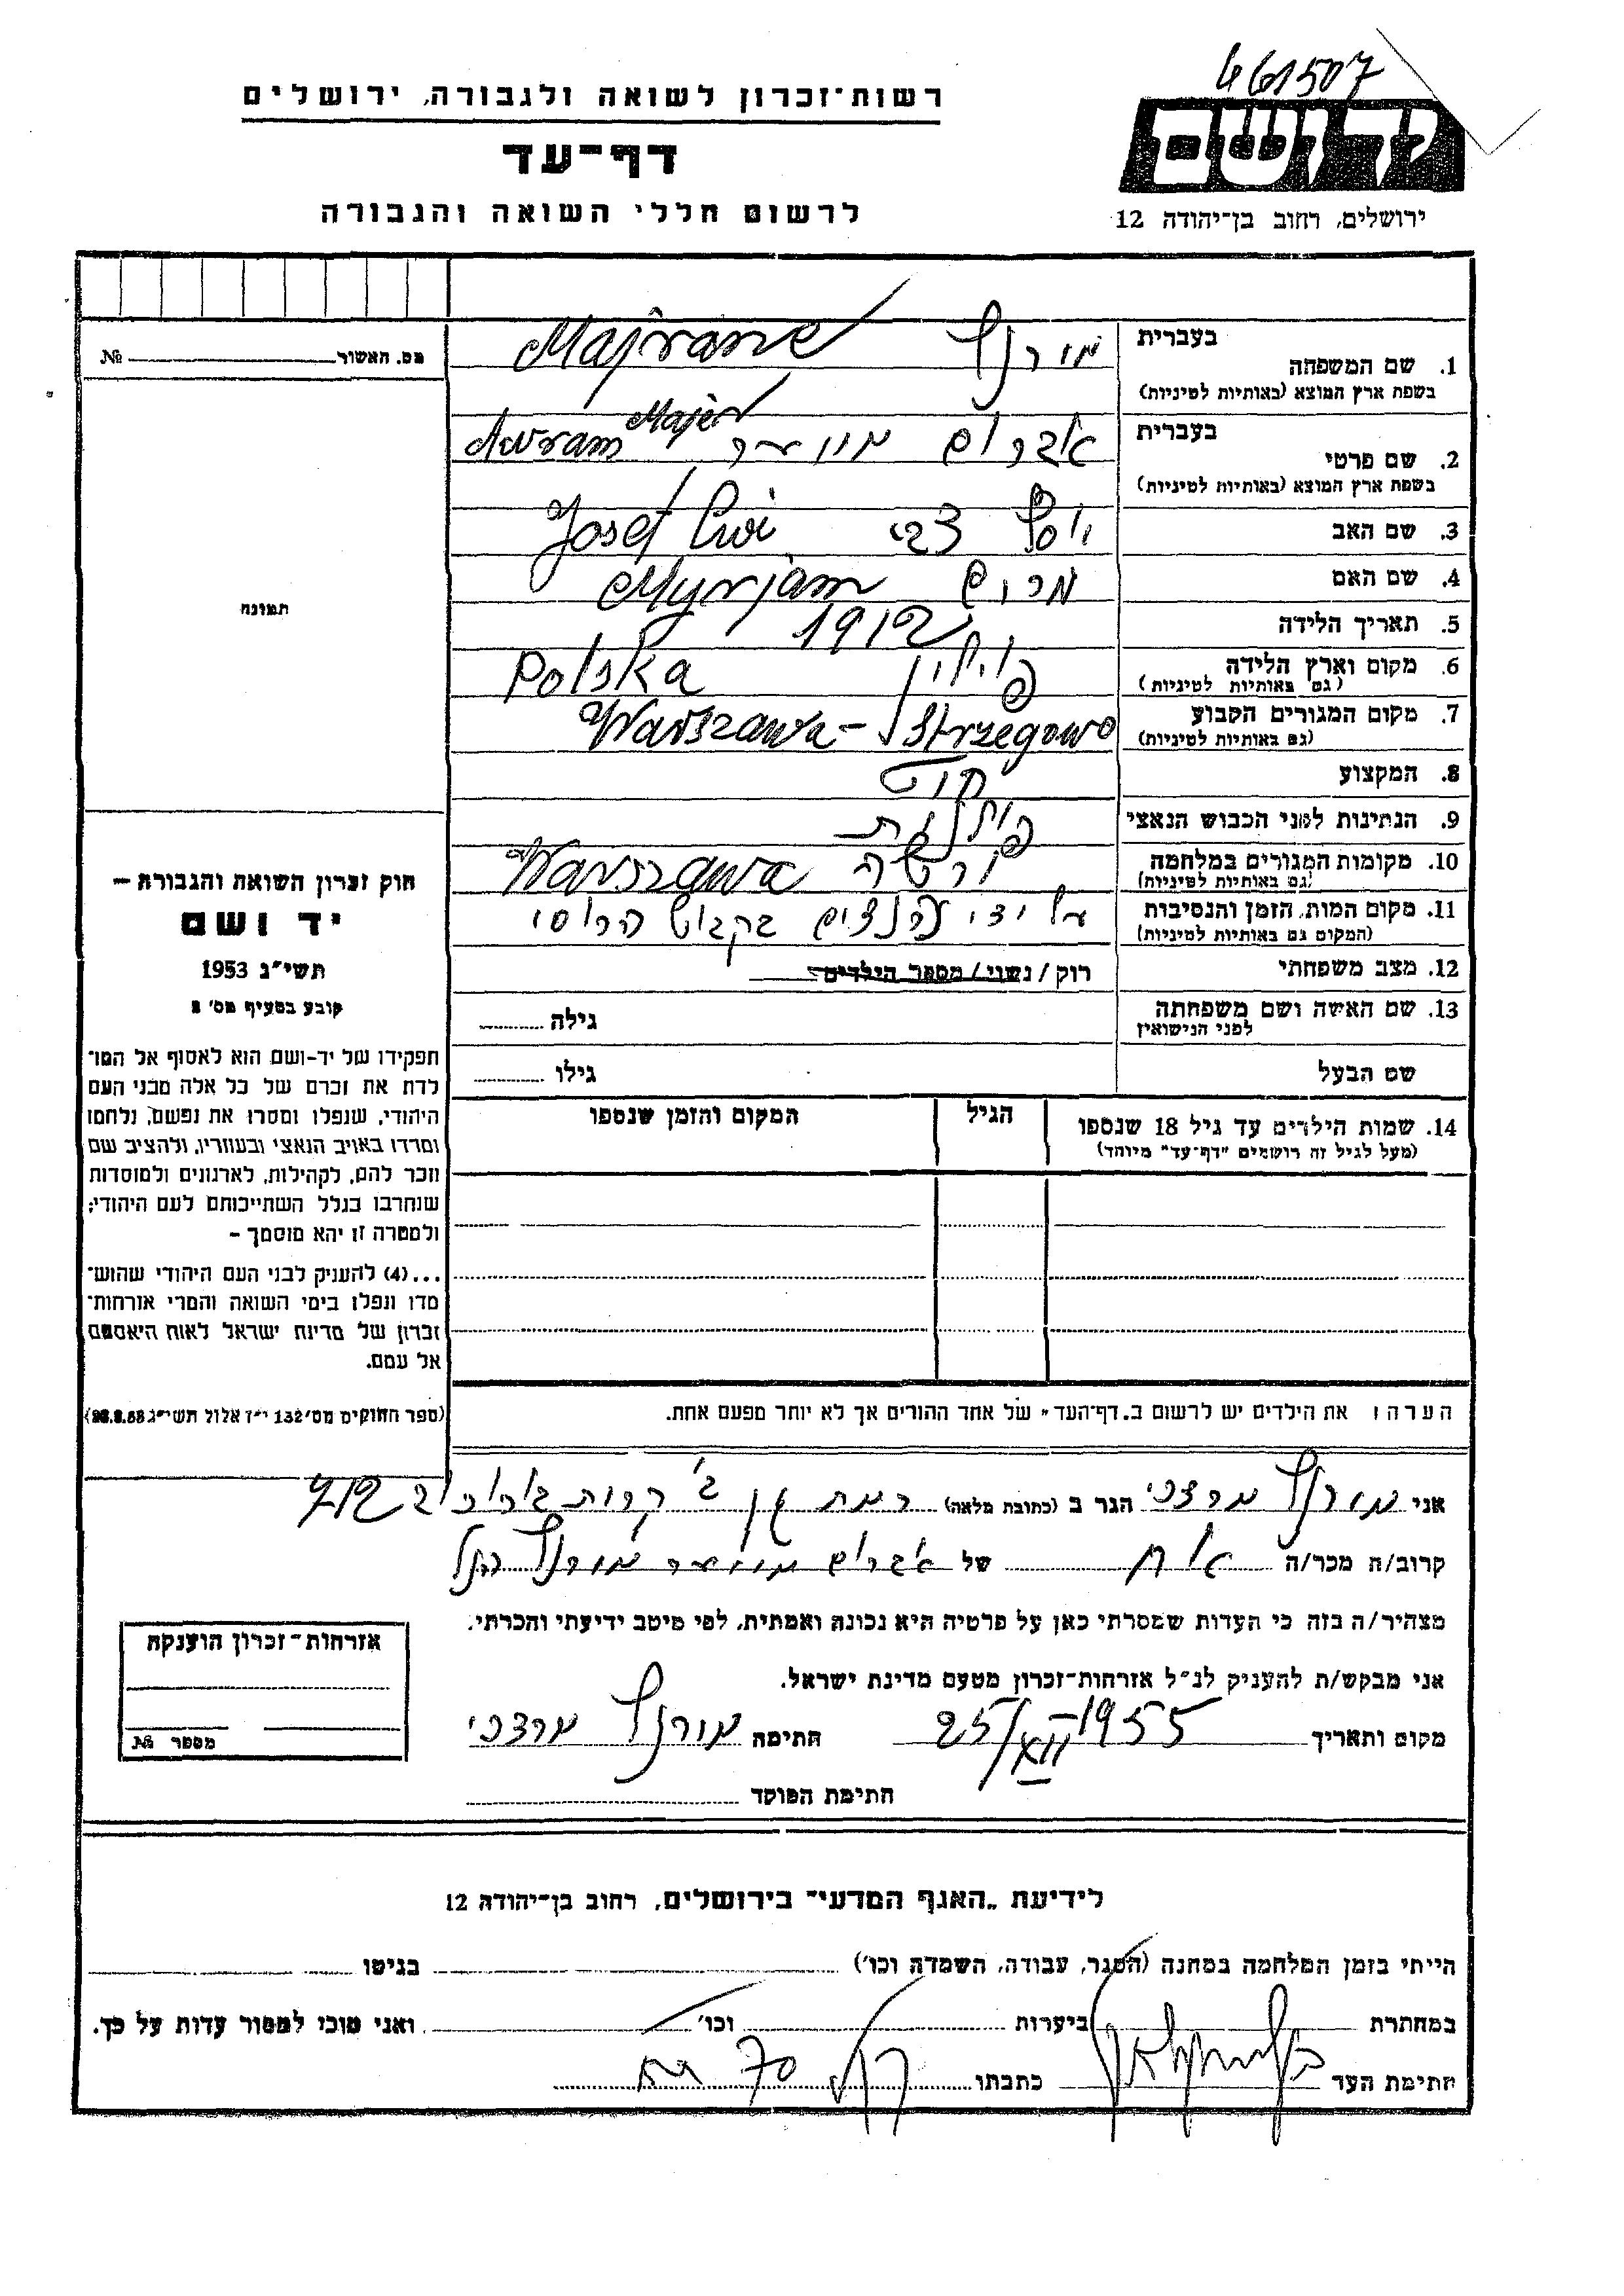 461507
יד ושם
ירושלים, רחוב בן־יהודה 12
רשות־זכרון לשואה ולגבורה, ירושלים
דף־עד
לרשום חללי השואה והגבורה
מס. האשור № 
תמונה
חוק זכרון השואה והגבורה –
יד ושם
תשי״ג 1953
קובע בסעיף מס' 2
תפקידו של יד-ושם הוא לאסוף אל המו־
לדת את זכרם של כל אלה מבני העם
היהודי, שנפלו ומסרו את נפשם, נלחמו
ומרדו באויב הנאצי ובעוזריו, ולהציב שם
וזכר להם, לקהילות, לארגונים ולמוסדות
שנחרבו בגלל השתייכותם לעם היהודי;
ולמטרה זו יהא מוסמך –
...(4) להעניק לבני העם היהודי שהוש־
מדו ונפלו בימי השואה והמרי אזרחות־
זכרון של מדינת ישראל לאות היאספם
אל עמם.
(ספר החוקים מס' 132 י״ז אלול תשי״ג 28.8.53)
בעברית
1. שם המשפחה
בשפת ארץ המוצא (באותיות לטיניות)
בעברית
2. שם פרטי אברהם Avram Majer
בשפת ארץ המוצא (באותיות לטיניות)
3. שם האב יוסף צבי Josef Cwi
4. שם האם מרים Myrjam
5. תאריך הלידה 1912
6. מקום וארץ הלידה פולין Polska
(גם באותיות לטיניות)
7. מקום המגורים הקבוע Warszawa - Strzegowo
(גם באותיות לטיניות)
8. המקצוע
9. הנתינות לפני הכבוש הנאצי פולנית
10. מקומות המגורים במלחמה ורשה Warszawa
(גם באותיות לטיניות)
11. מקום המות, הזמן והנסיבות על ידי הנצים הרוסי
(המקום גם באותיות לטיניות)
12. מצב משפחתי רוק / נשוי / מספר הילדים
13. שם האשה ושם משפחתה גילה
לפני הנישואין
שם הבעל גילו
14. שמות הילדים עד גיל 18 שנספו הגיל המקום והזמן שנספו
(מעל לגיל זה רושמים "דף־עד" מיוחד)
הערה: את הילדים יש לרשום ב„דף־העד" של אחד ההורים אך לא יותר מפעם אחת.
אני מרדכי הגר ב (כתובת מלאה) רמת גן
קרוב/ה מכר/ה אח של הנ״ל
מצהיר/ה בזה כי העדות שמסרתי כאן על פרטיה היא נכונה ואמתית, לפי מיטב ידיעתי והכרתי.
אני מבקש/ת להעניק לנ״ל אזרחות־זכרון מטעם מדינת ישראל.
מקום ותאריך 25/XII-1955 חתימה מרדכי
חתימת הפוקד
אזרחות־זכרון הוענקה
מספר №
לידיעת „האגף המדעי" בירושלים, רחוב בן־יהודה 12
הייתי בזמן המלחמה במחנה (הסגר, עבודה, השמדה וכו') בגיטו
במחתרת ביערות וכו' ואני מוכן למסור עדות על כך.
חתימת העד כתבתו